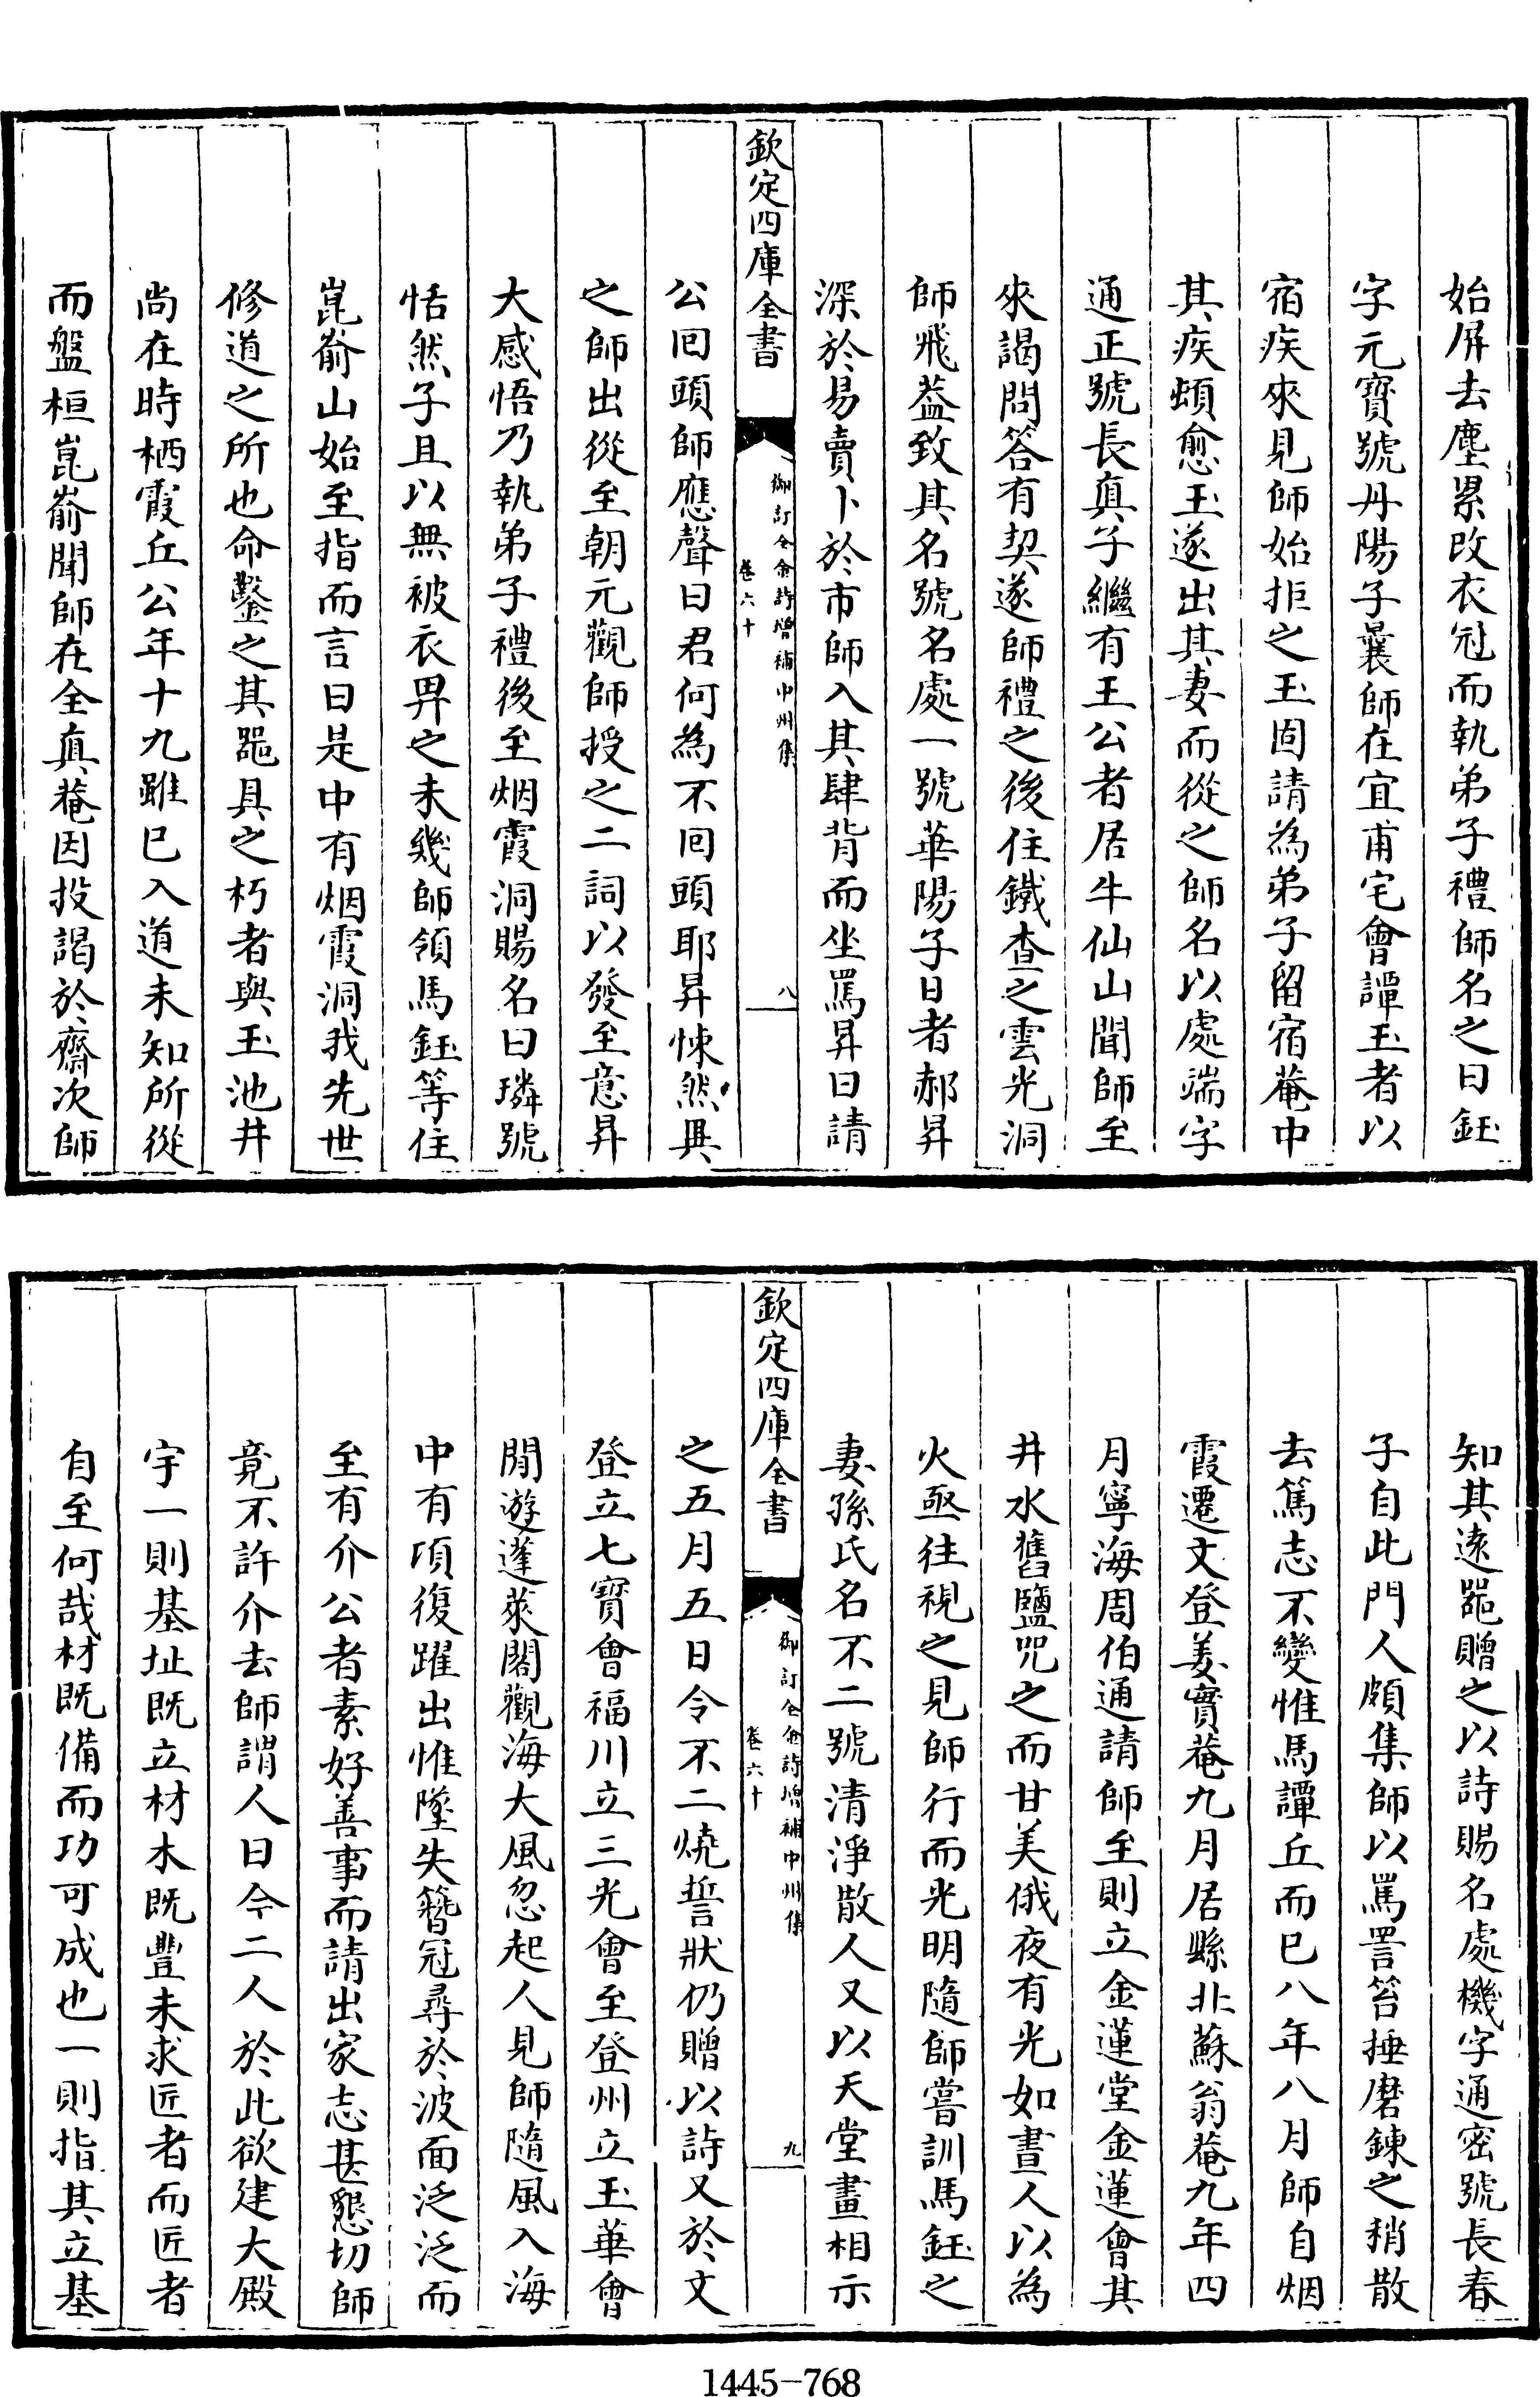 始屏去塵累改衣冠而執弟子禮師名之曰鈺
字元寳號丹陽子曩師在宜甫宅會譚玉者以
宿疾來見師始拒之玉固請為弟子留宿菴中
其疾頓愈玉遂出其妻而從之師名以處端字
通正號長真子繼有王公者居牛仙山聞師至
來謁問答有契遂師禮之後住鐵查之雲光洞
師飛葢致其名號名處一號華陽子日者郝昇
深於易賣卜於市師入其肆背而坐罵昇曰請
欽定四庫全書
御訂全金詩增補中州集
卷六十
八
公回頭師應聲曰君何為不回頭耶昇悚然異
之師出從至朝元觀師授之二詞以發至意昇
大感悟乃執弟子禮後至烟霞洞賜名曰璘號
恬然子且以無袚衣畀之未幾師領馬鈺等住
崑嵛山始至指而言曰是中有烟霞洞我先世
修道之所也命鑿之其噐具之朽者與玉池井
尚在時栖霞丘公年十九雖已入道未知所從
而盤桓崑嵛聞師在全真菴因投謁於齋次師
知其遠噐贈之以詩賜名處機字通密號長春
子自此門人頗集師以罵詈笞捶磨鍊之稍散
去篤志不變惟馬譚丘而已八年八月師自烟
霞遷文登姜實菴九月居縣北蘇翁菴九年四
月寧海周伯通請師至則立金蓮堂金蓮會其
井水舊鹽咒之而甘美俄夜有光如晝人以為
火亟往視之見師行而光明隨師嘗訓馬鈺之
妻孫氏名不二號清淨散人又以天堂畫相示
欽定四庫全書
御訂全金詩增補中州集
卷六十
九
之五月五日令不二燒誓狀仍贈以詩又於文
登立七寳會福川立三光會至登州立玉華會
閒遊蓬萊閣觀海大風忽起人見師隨風入海
中有項復躍出惟墜失簪冠尋於波面泛泛而
至有介公者素好善事而請出家志甚懇切師
竟不許介去師謂人曰今二人於此欲建大殿
宇一則基址既立材木既豐未求匠者而匠者
自至何哉材既備而功可成也一則指其立基
1445-768